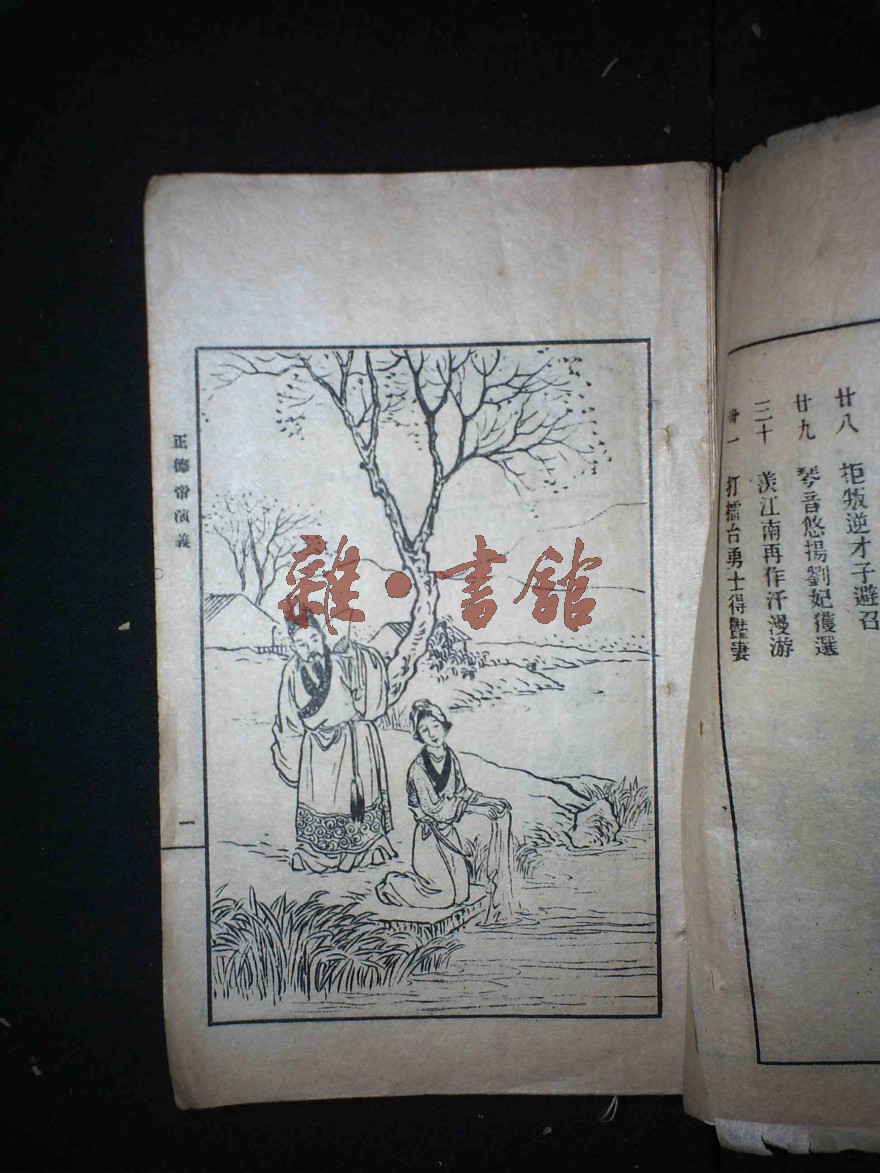 廿八 拒叛逆才子避召
廿九 琴音悠揚劉妃獲選
三十 羨江南再作汗漫游
卅一 打擂台勇士得豔妻
正德帝演義
一
雜·書館